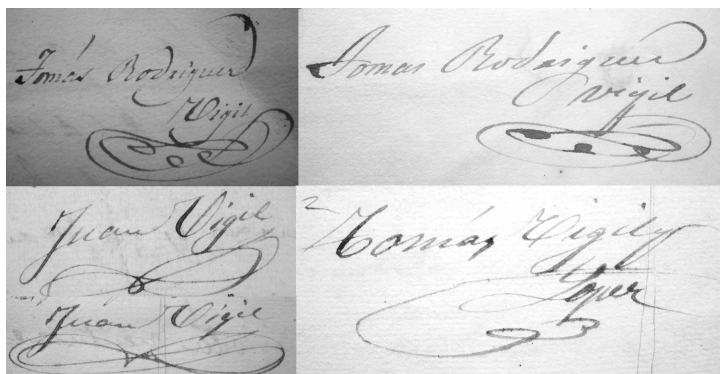 Tomás Rodriguez
Vigil
Tomas Rodriguez
Vigil
Juan Vigil
Juan Vigil
2
Tomás Vigil y
Lopez